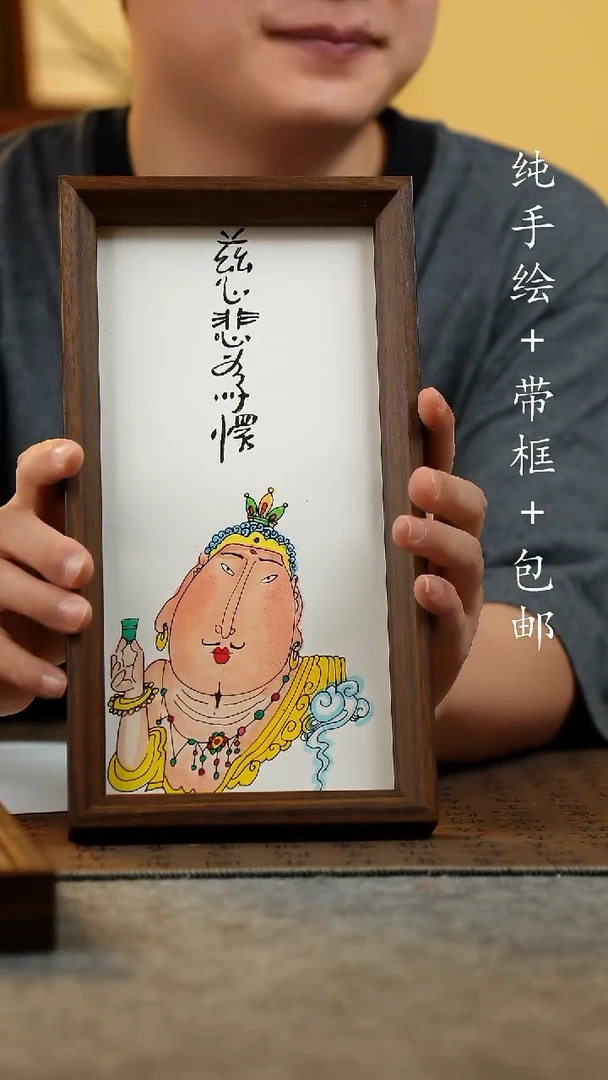 纯手绘+带框+包邮
慈悲為懷